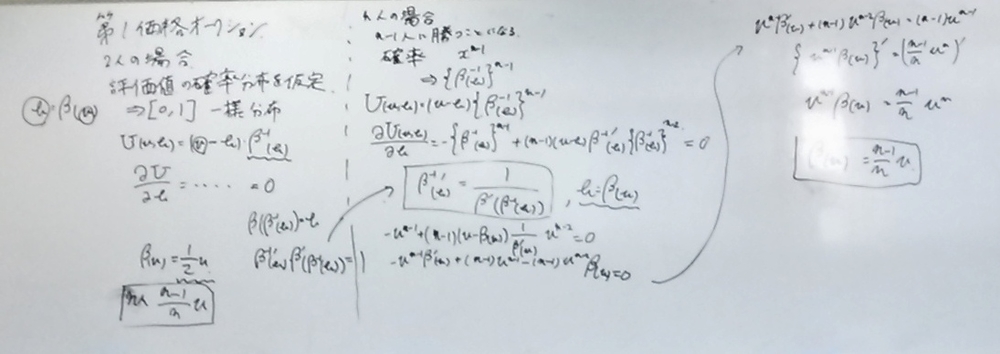 第1価格オークション
2人の場合
評価値の確率分布を仮定
b=β(u) ⇒[0,1] 一様分布
U(u,b)=(u-b)・β⁻¹(b)
∂U/∂b=‥‥‥=0
β(β⁻¹(b))=b
β⁻¹'(b)β'(β⁻¹(b))=1
β(u)=1/2 u
n人 (n-1)/n u
n人の場合
n-1人に勝つことになる
確率 xⁿ⁻¹
⇒{β⁻¹(b)}ⁿ⁻¹
U(u,b)=(u-b){β⁻¹(b)}ⁿ⁻¹
∂U(u,b)/∂b=-{β⁻¹(b)}ⁿ⁻¹+(n-1)(u-b)β⁻¹'(b){β⁻¹(b)}ⁿ⁻²=0
β⁻¹'(b)=1/β'(β⁻¹(b)), b=β(u)
-uⁿ⁻¹+(n-1)(u-β(u))1/β'(u) uⁿ⁻²=0
-uⁿ⁻¹β'(u)+(n-1)uⁿ⁻¹-(n-1)uⁿ⁻²β(u)=0
uⁿ⁻¹β'(u)+(n-1)uⁿ⁻²β(u)=(n-1)uⁿ⁻¹
{uⁿ⁻¹β(u)}'=((n-1)/n uⁿ)'
uⁿ⁻¹β(u)=(n-1)/n uⁿ
β(u)=(n-1)/n u